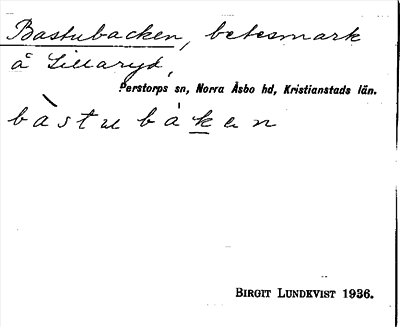 Bastubacken, betesmark
å Lillaryd,
Perstorps sn, Norra Åsbo hd, Kristianstads län.
bàstu bákен
BIRGIT LUNDKVIST 1936.